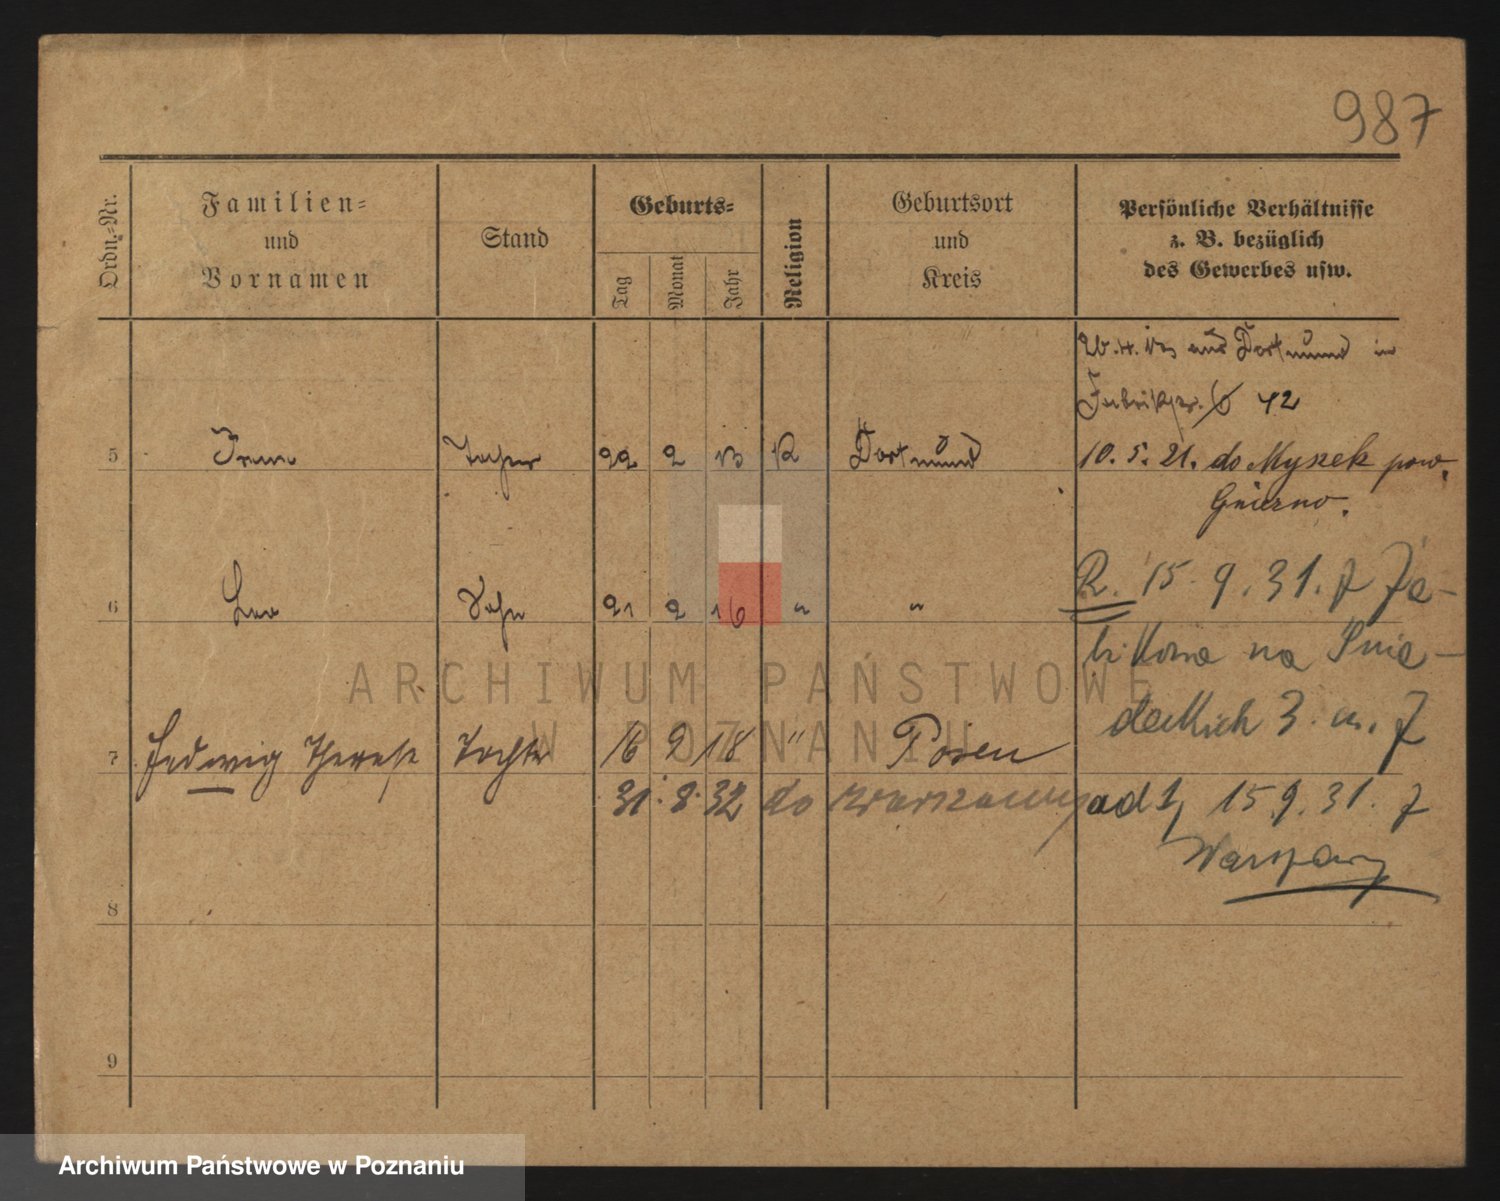 987
Ordn.-Nr.
Familien-
und
Vornamen
Stand
Geburts-
Tag
Monat
Jahr
Religion
Geburtsort
und
Kreis
Persönliche Verhältnisse
z. B. bezüglich
des Gewerbes usw.
aus Dortmund in
42
5 Irene Tochter 22 2 13 K Dortmund
10. 5. 21. do Myszek pow.
Gniezno.
6 Leo Sohn 21 2 16 " "
R. 15. 9. 31. z
na Śnia-
deckich 3. m. 7
7 Hedwig Therese Tochter 16 9 18 " Posen
31. 8. 32 do Warszawy
ad 1, 15. 9. 31. z
Warszawy
8
9
ARCHIWUM PAŃSTWOWE
W POZNANIU
Archiwum Państwowe w Poznaniu